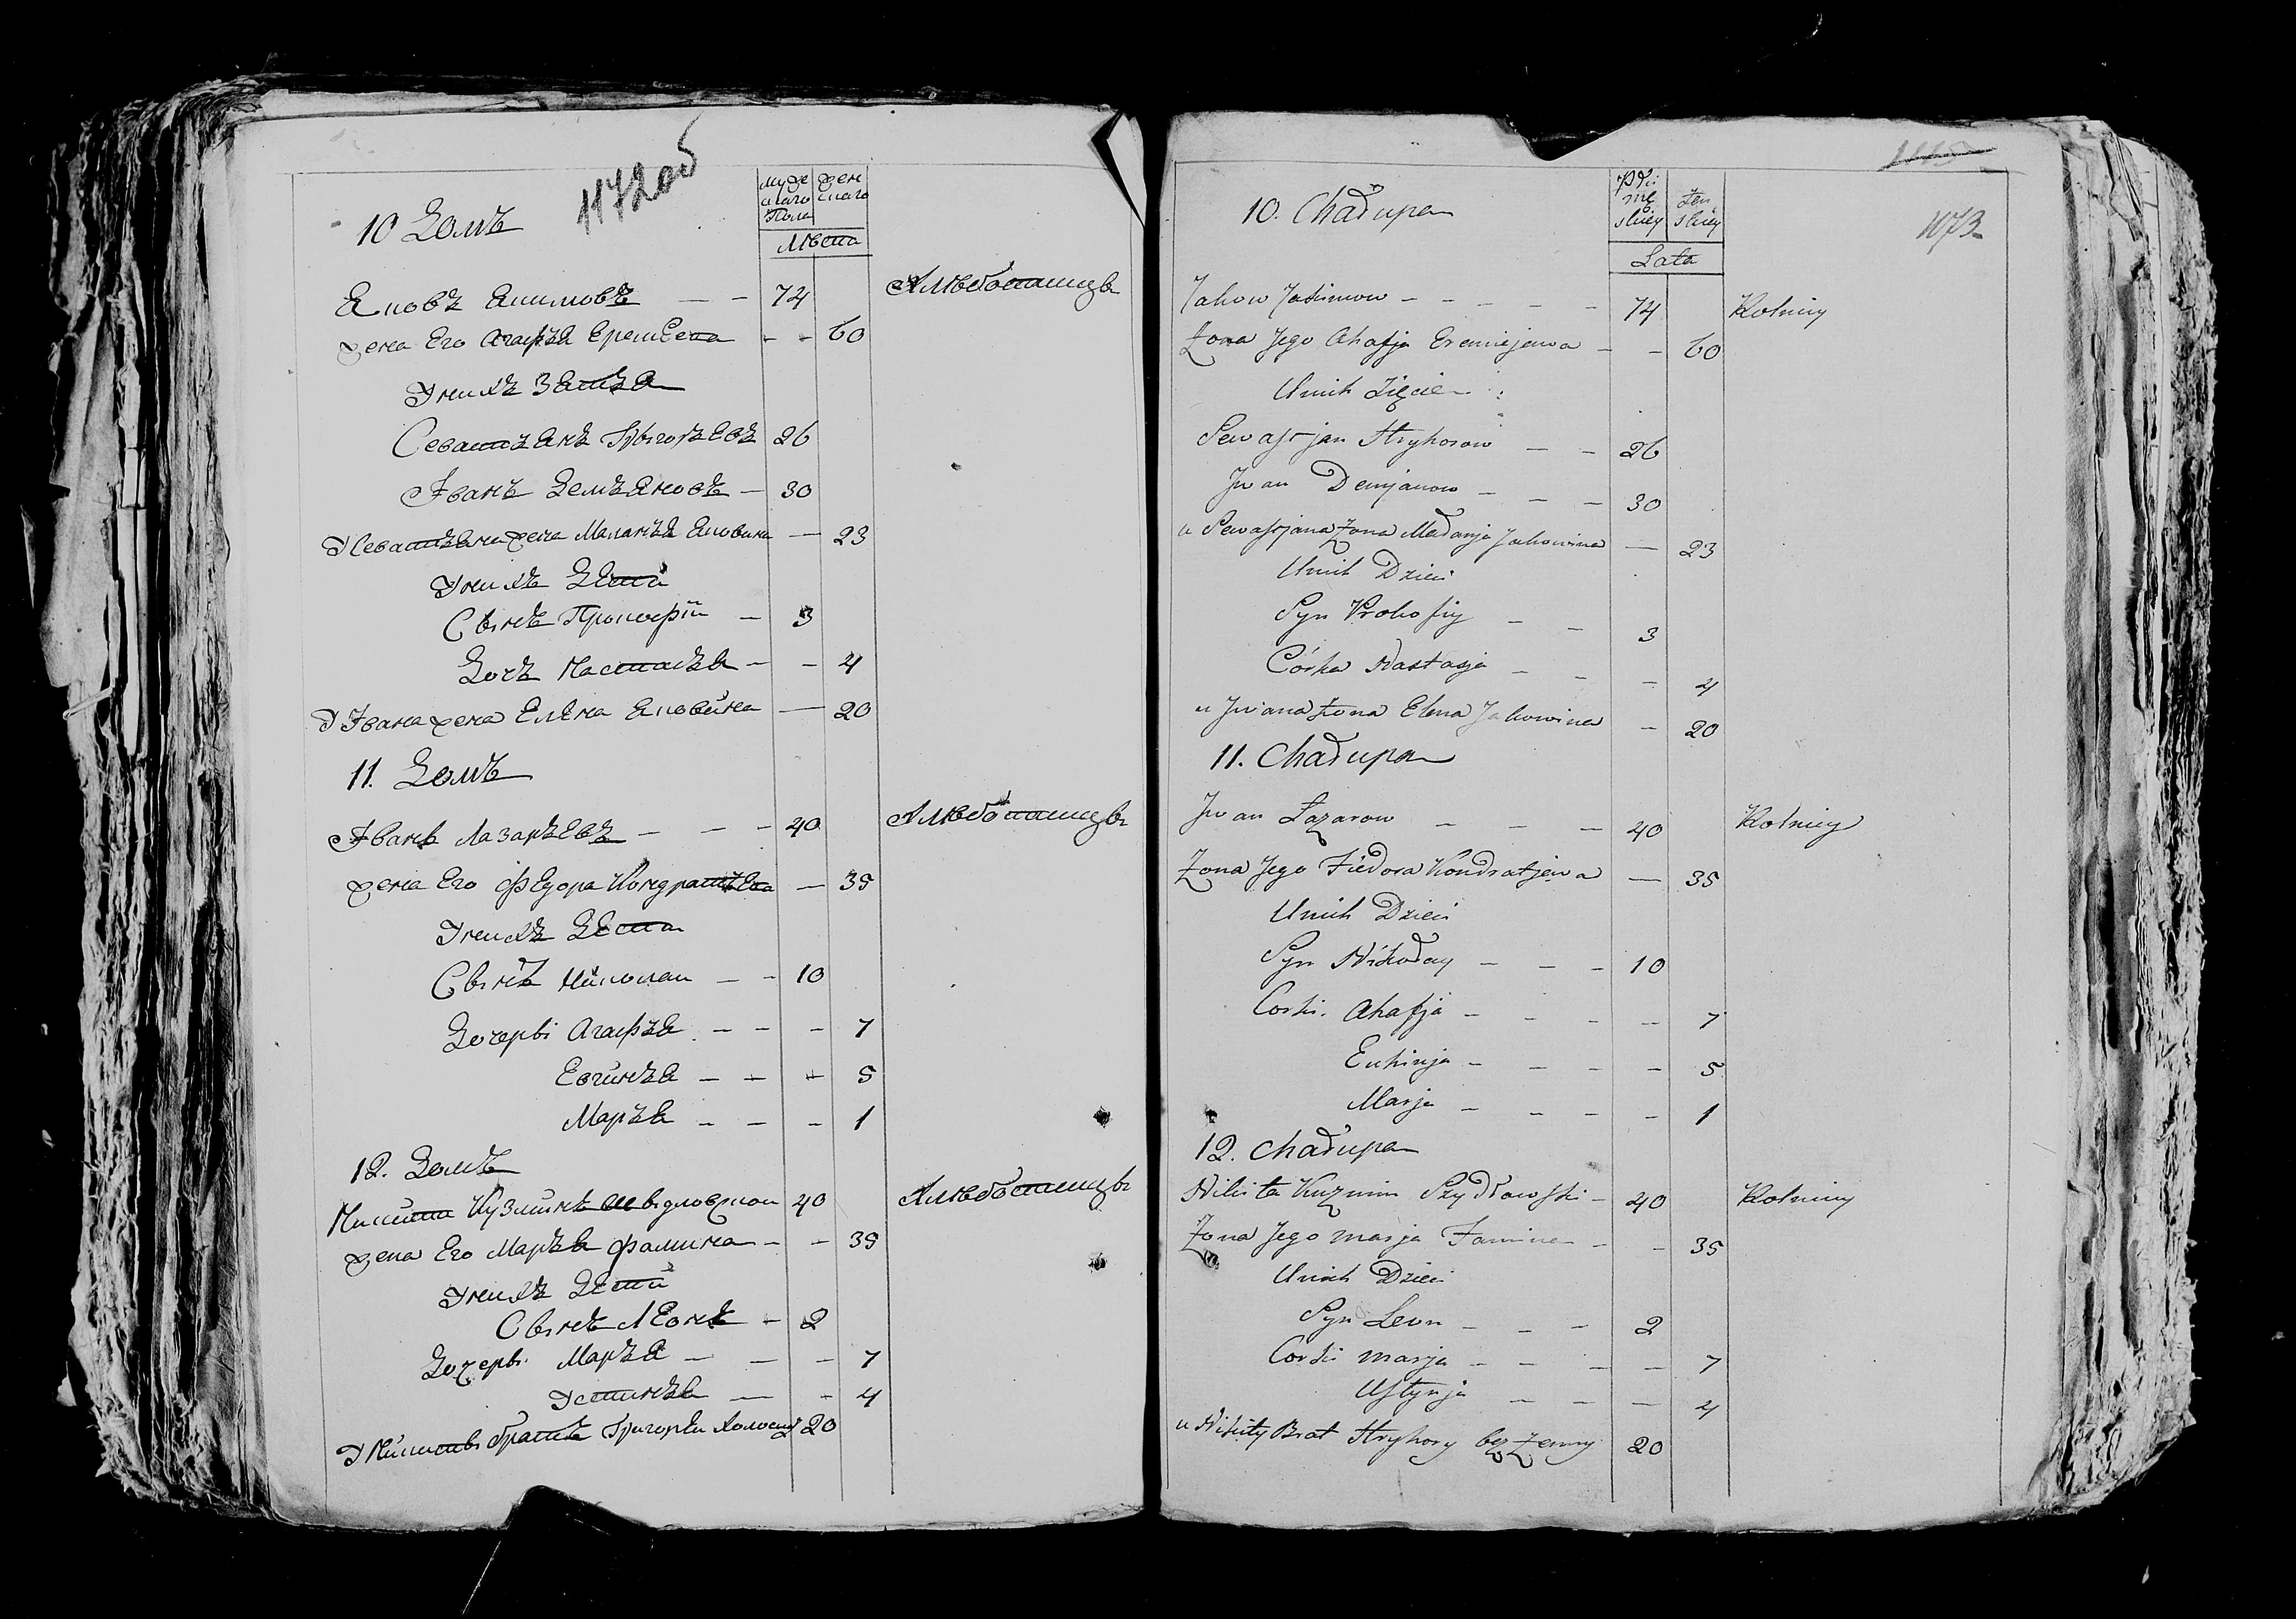 1172 об
муже
скаго
Пола
жен
скаго
Лѣта
10 Домъ
Яковъ Якимовъ — — 74 Хлѣбопашцъ
жена Его Агафъя Еремѣева - - 60
Унихъ Зятъя
Севастъянъ Грыгоръевъ 26
Іванъ Демъяновъ — 30
У Севастъяна жена Маланъя Яковина — 23
Унихъ Дѣти
Сынъ Прокофій — 3
Дочъ Настасъя — - 4
У Івана жена Елѣна Яковина — 20
11. Домъ
Іванъ Лазаръевъ — — — 40 Хлѣбопашцъ
жена Его Федора Кондратъева — 35
Унихъ Дѣти
Сынъ Николай — — 10
Дочеры Агафъя — — — 7
Евгинъя — — — 5
Маръя — — — 1
12. Домъ
Никита Кузминъ Шыдловскои 40 Хлѣбопашцъ
жена Его Маръя Фамина — — 35
Унихъ Дѣти
Сынъ Леонъ — 2
Дочеры Маръя — — — 7
Устинъя — — 4
У Никиты братъ Григорѣи Холостъ 20
1115
1073
płci
męskiey
żen
skiey
Lata
10. Chałupa
Jakow Jakimow - - - - - 74 Rolniy
Żona Jego Ahafja Eremiejewa - - 60
Unich Zięcie
Sewastjan Hryhorow - - 26
Jwan Demjanow - - - 30
u Sewastjana Żona Małanja Jakowina — 23
Unich Dzieci
Syn Prokofiy - - 3
Córka Nastasja - - - 4
u Jwana Żona Elena Jakowina - 20
11. Chałupa
Jwan Łazarow - - - 40 Rolniy
Żona Jego Fiedora Kondratjewa — 35
Unich Dzieci
Syn Nikołay - - - 10
Corki Ahafja - - - - 7
Euhinja - - - - 5
Marja - - - - 1
12. Chałupa
Nikita Kuzmin Szydłowski - 40 Rolniy
Żona Jego Marja Famina - - 35
Unich Dzieci
Syn Leon - - - 2
Corki Marja - - - - 7
Ustynja - - - 4
u Nikity Brat Hryhory bez Żenny 20